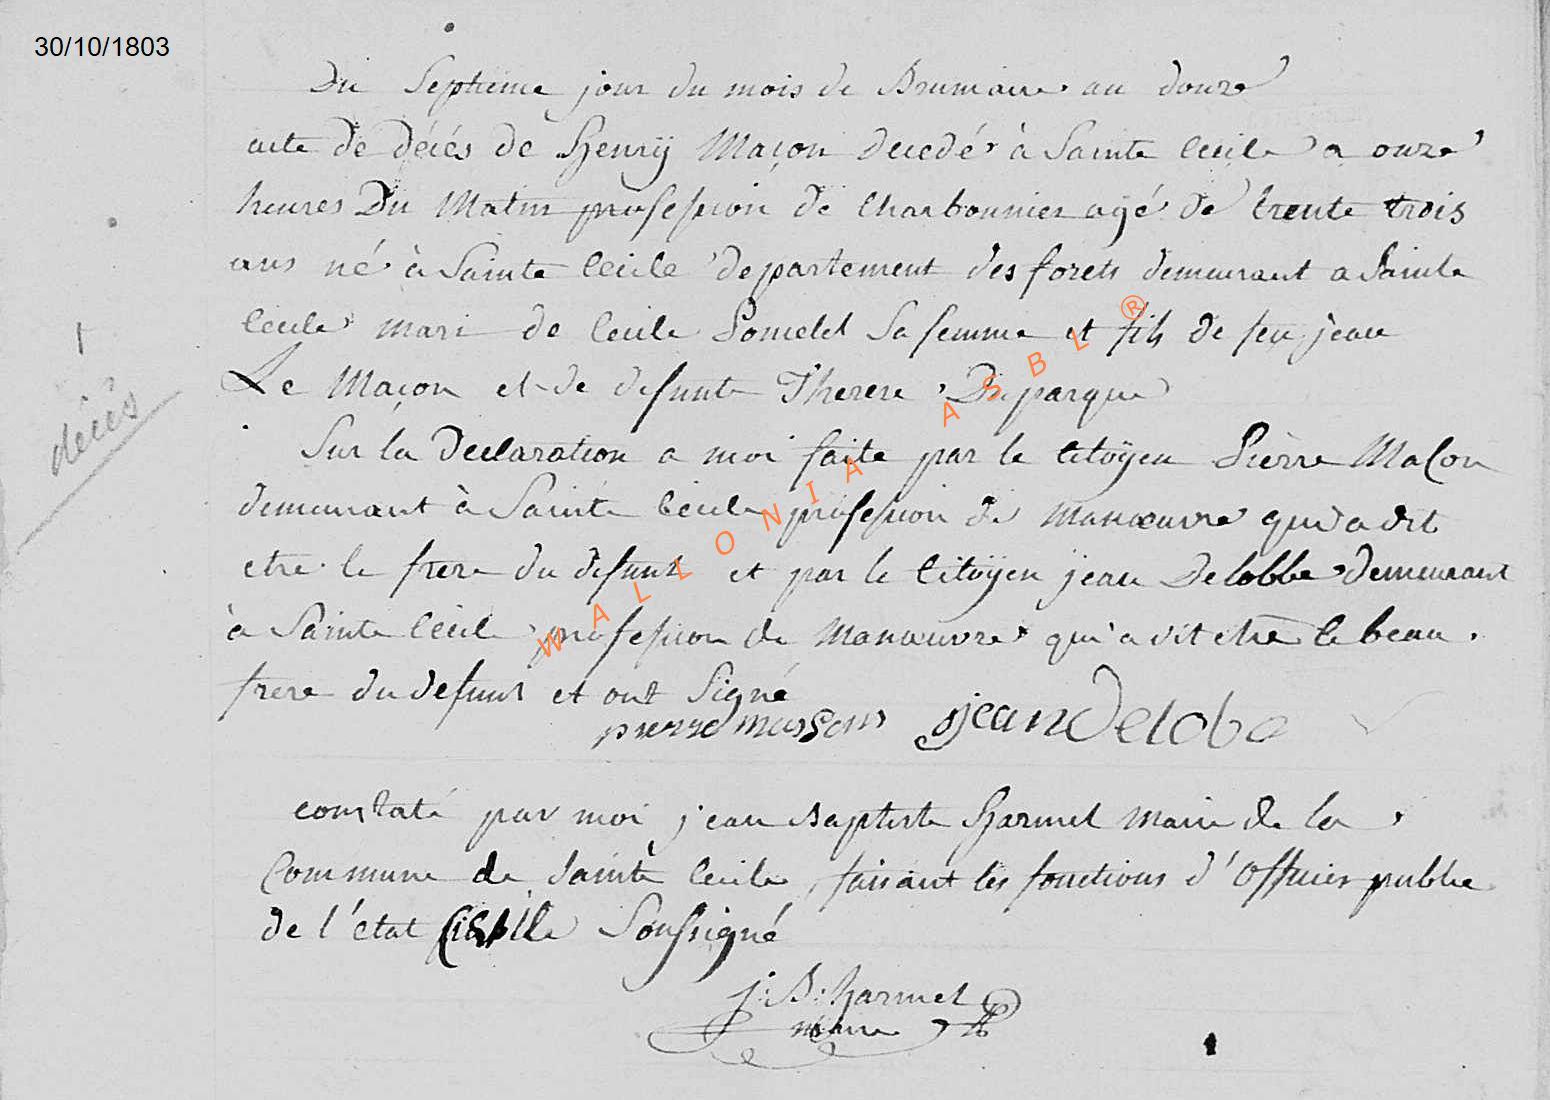 30/10/1803
Du Septieme jour du mois de Brumaire an douze
acte de décés de Henrÿ Maçon decedé à Sainte Cecile a onze
heures Du Matin profession de Charbonnier agé de trente trois
ans né à Sainte Cecile departement des forets demeurant a Sainte
Cecile mari de Cecile Poncelet Sa femme et fils de feu jean
Le Maçon et de defunte Therese Duparque
décés
Sur la Declaration a moi faite par le citoÿen Pièrre Maçon
demeurant à Sainte Cecile profession de Manœuvre qui a dit
etre le frere du defunt et par le Citoÿen jean Delobbe demeurant
à Sainte Cecile profession de Manœuvre qui a dit etre le beau
frere du defunt et ont Signé
pierre massons jean Delobe
constaté par moi jean Baptiste Harmel Maire de la
Commune de Sainte Cecile, faisant les fonctions d'Officier public
de l'état Civille Soussigné
J: B: Harmel
maire
WALLONIA ASBL ®